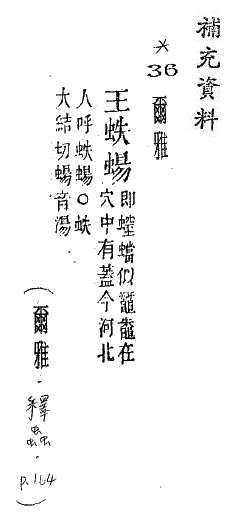 補充資料
*36 爾雅
王蛈蝪
即螲蟷似鼅鼄在
穴中有蓋今河北
人呼蛈蝪○蛈
大結切蝪音湯
(爾雅·釋蟲·p.164)